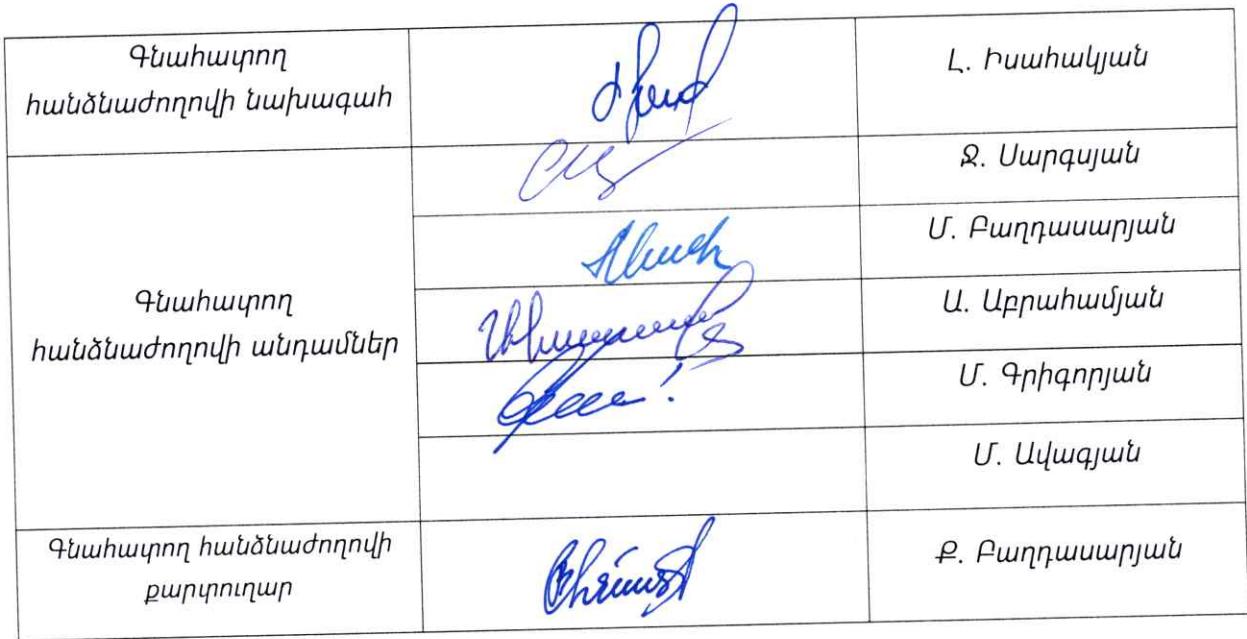 Գնահատող
հանձնաժողովի նախագահ
Լ. Իսահակյան
Գնահատող
հանձնաժողովի անդամներ
Ջ. Սարգսյան
Մ. Բաղդասարյան
Ա. Աբրահամյան
Մ. Գրիգորյան
Մ. Ավագյան
Գնահատող հանձնաժողովի
քարտուղար
Ք. Բաղդասարյան